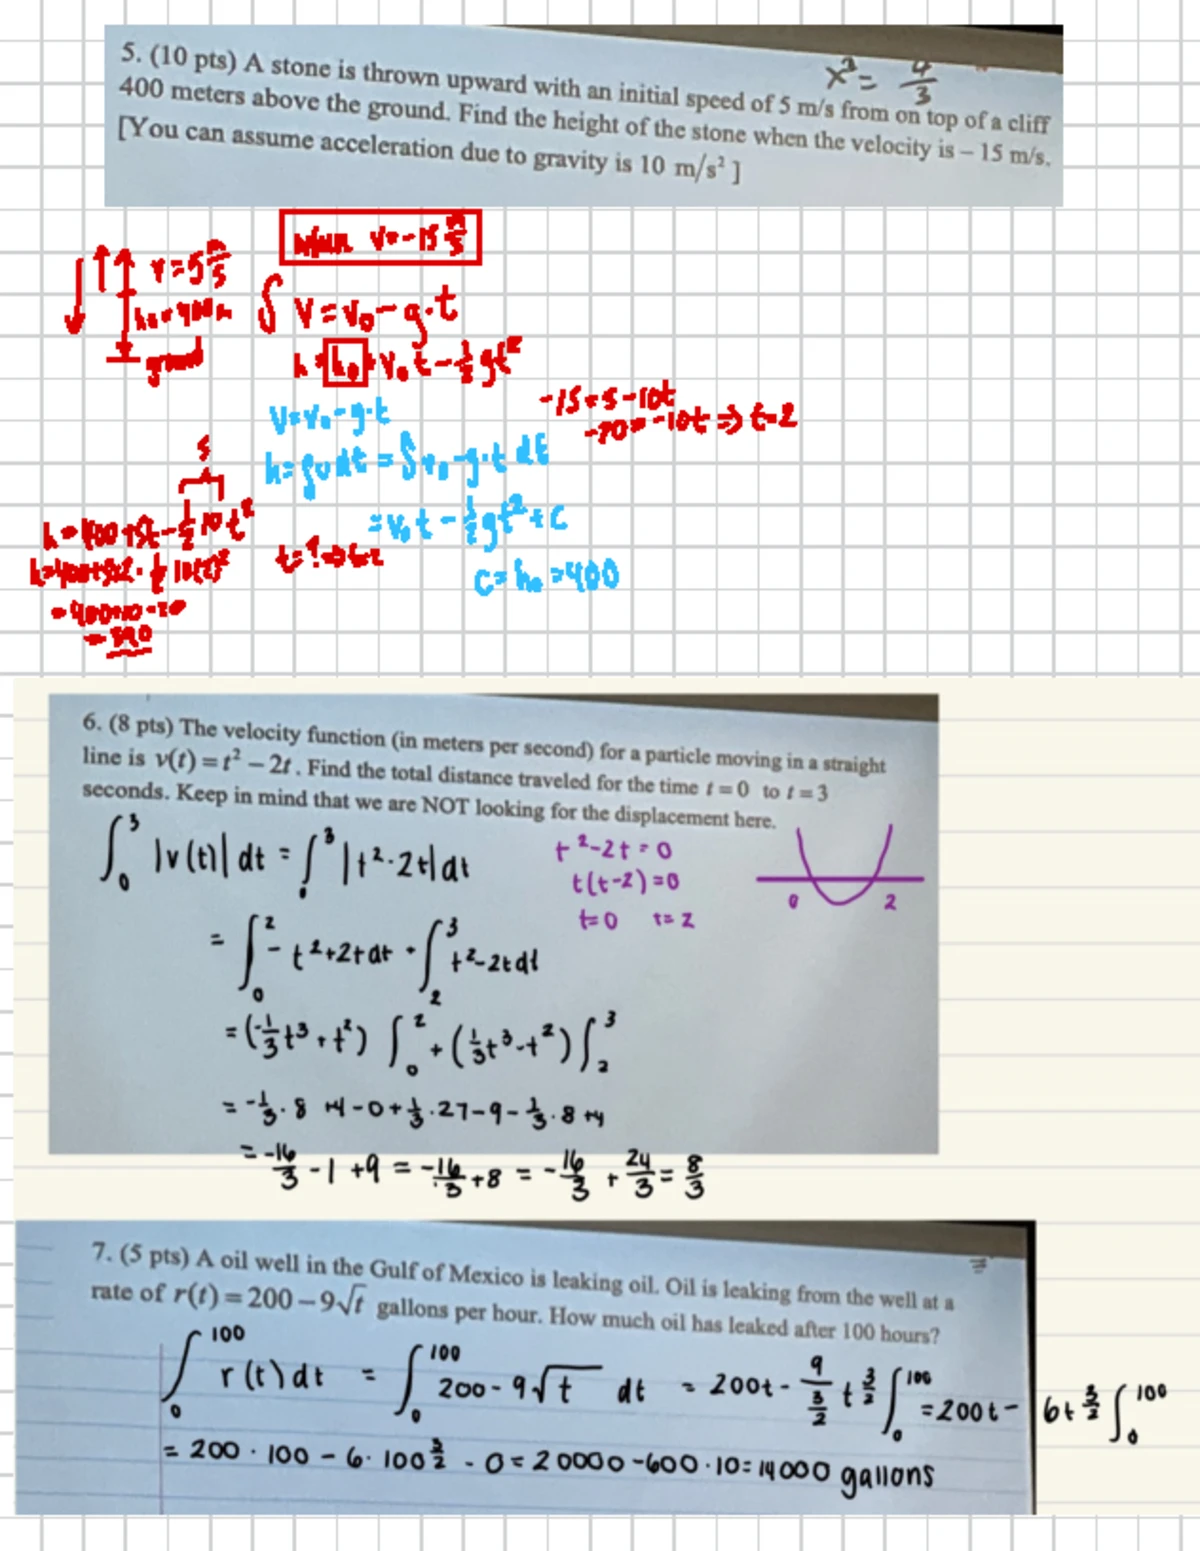 5. (10 pts) A stone is thrown upward with an initial speed of 5 m/s from on top of a cliff
400 meters above the ground. Find the height of the stone when the velocity is – 15 m/s.
[You can assume acceleration due to gravity is 10 m/s² ]
x³ = 4/3
when v=-15 m/s
v=5 m/s
h₀=400m
ground
∫ v=v₀-g·t
h=h₀+v₀t-½gt²
-15=5-10t
-20=-10t ⇒ t=2
v=v₀-g·t
h=∫v dt = ∫v₀-g·t dt
= v₀t-½gt²+c
c=h₀=400
5
h=400+5t-½10t²
h=400+5·2-½10(2)²
t=?⇒t=2
=400+10-20
=390
6. (8 pts) The velocity function (in meters per second) for a particle moving in a straight
line is v(t) = t² – 2t. Find the total distance traveled for the time t = 0 to t = 3
seconds. Keep in mind that we are NOT looking for the displacement here.
∫₀³ |v(t)| dt = ∫₀³ |t²-2t| dt
t²-2t=0
t(t-2)=0
t=0 t=2
0 2
= ∫₀² -t²+2t dt + ∫₂³ t²-2t dt
= (-⅓t³+t²) ∫₀² + (⅓t³-t²) ∫₂³
= -⅓·8 +4-0+⅓·27-9-⅓·8+4
= -16/3 -1 +9 = -16/3 +8 = -16/3 + 24/3 = 8/3
7. (5 pts) A oil well in the Gulf of Mexico is leaking oil. Oil is leaking from the well at a
rate of r(t) = 200 – 9√t gallons per hour. How much oil has leaked after 100 hours?
∫₀¹⁰⁰ r(t)dt = ∫₀¹⁰⁰ 200-9√t dt = 200t - 9/(3/2) t^(3/2) ∫₀¹⁰⁰ = 200t - 6t^(3/2) ∫₀¹⁰⁰
= 200·100 - 6·100^(3/2) - 0 = 20000-600·10 = 14000 gallons